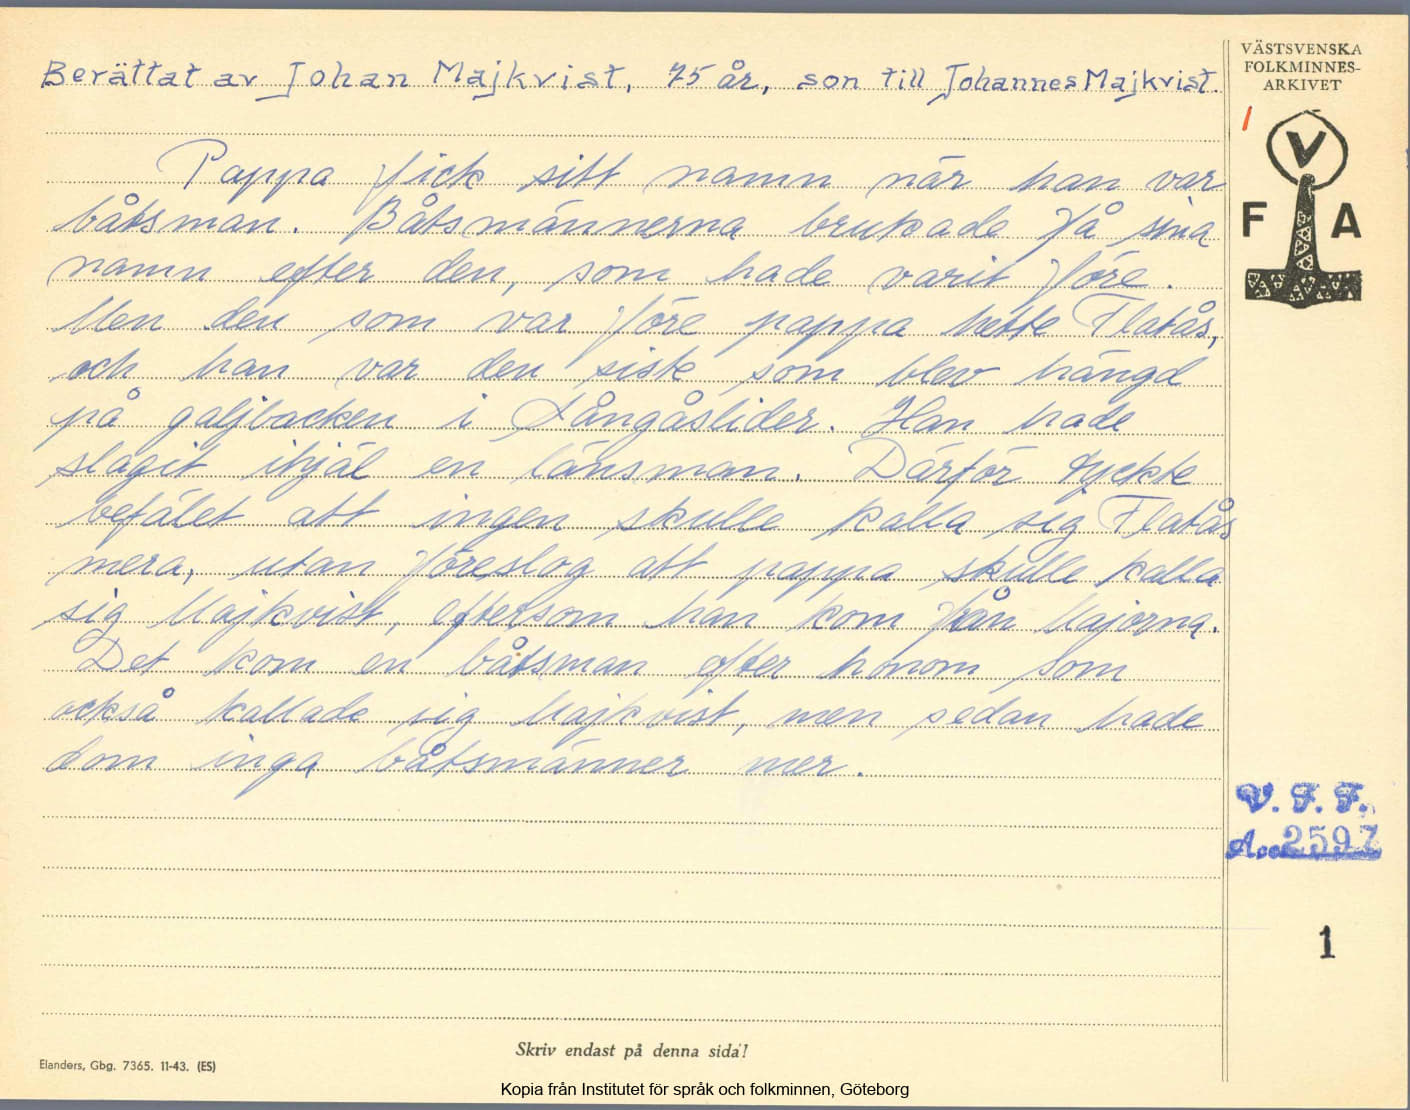 Berättat av Johan Majkvist, 75 år, son till Johannes Majkvist.
Pappa fick sitt namn när han var
båtsman. Båtsmännerna brukade få sina
namn efter den, som hade varit före.
Men den som var före pappa hette Flatås,
och han var den siste som blev hängd
på galjbacken i Långåslider. Han hade
slagit ihjäl en länsman. Därför tyckte
befälet att ingen skulle kalla sig Flatås
mera, utan föreslog att pappa skulle kalla
sig Majkvist, eftersom han kom från Majorna.
Det kom en båtsman efter honom som
också kallade sig Majkvist, men sedan hade
dom inga båtsmänner mer.
VÄSTSVENSKA
FOLKMINNES-
ARKIVET
V
F A
V. F. F.
Acc. 2597
1
Skriv endast på denna sida!
Elanders, Gbg. 7365. 11-43. (ES)
Kopia från Institutet för språk och folkminnen, Göteborg